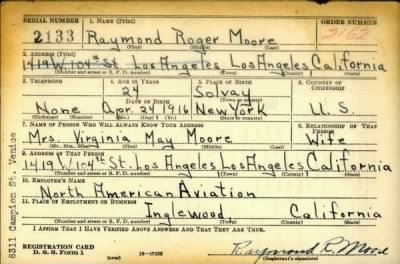 SERIAL NUMBER 1. NAME (Print) ORDER NUMBER
2133 Raymond Roger Moore 3162
(First) (Middle) (Last)
2. ADDRESS (Print)
1419 W 104th St. Los Angeles Los Angeles California
(Number and street or R. F. D. number) (Town) (County) (State)
3. TELEPHONE 4. AGE IN YEARS 5. PLACE OF BIRTH 6. COUNTRY OF CITIZENSHIP
24 Solvay
DATE OF BIRTH
None Apr. 24 1916 New York U.S.
7. NAME OF PERSON WHO WILL ALWAYS KNOW YOUR ADDRESS 8. RELATIONSHIP OF THAT PERSON
Mrs. Virginia May Moore Wife
9. ADDRESS OF THAT PERSON
1419 W 104th St. Los Angeles Los Angeles California
(Number and street or R. F. D. number) (Town) (County) (State)
10. EMPLOYER'S NAME
North American Aviation
11. PLACE OF EMPLOYMENT OR BUSINESS
Inglewood California
(Number and street or R. F. D. number) (Town) (County) (State)
I AFFIRM THAT I HAVE VERIFIED ABOVE ANSWERS AND THAT THEY ARE TRUE.
REGISTRATION CARD
D. S. S. Form 1 (over) Raymond R Moore
(Registrant's signature)
8311 Campion St. Venice